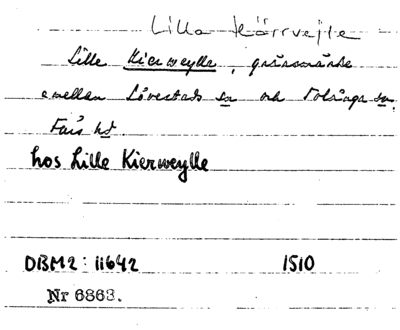 Lilla Kärrvejle
Lille Kierweylle, gränsmärke
emellan Lövestads sn och Tolånga sn,
Färs hd.
hos Lille Kierweylle
DBM2: 11642 1510
Nr 6863.